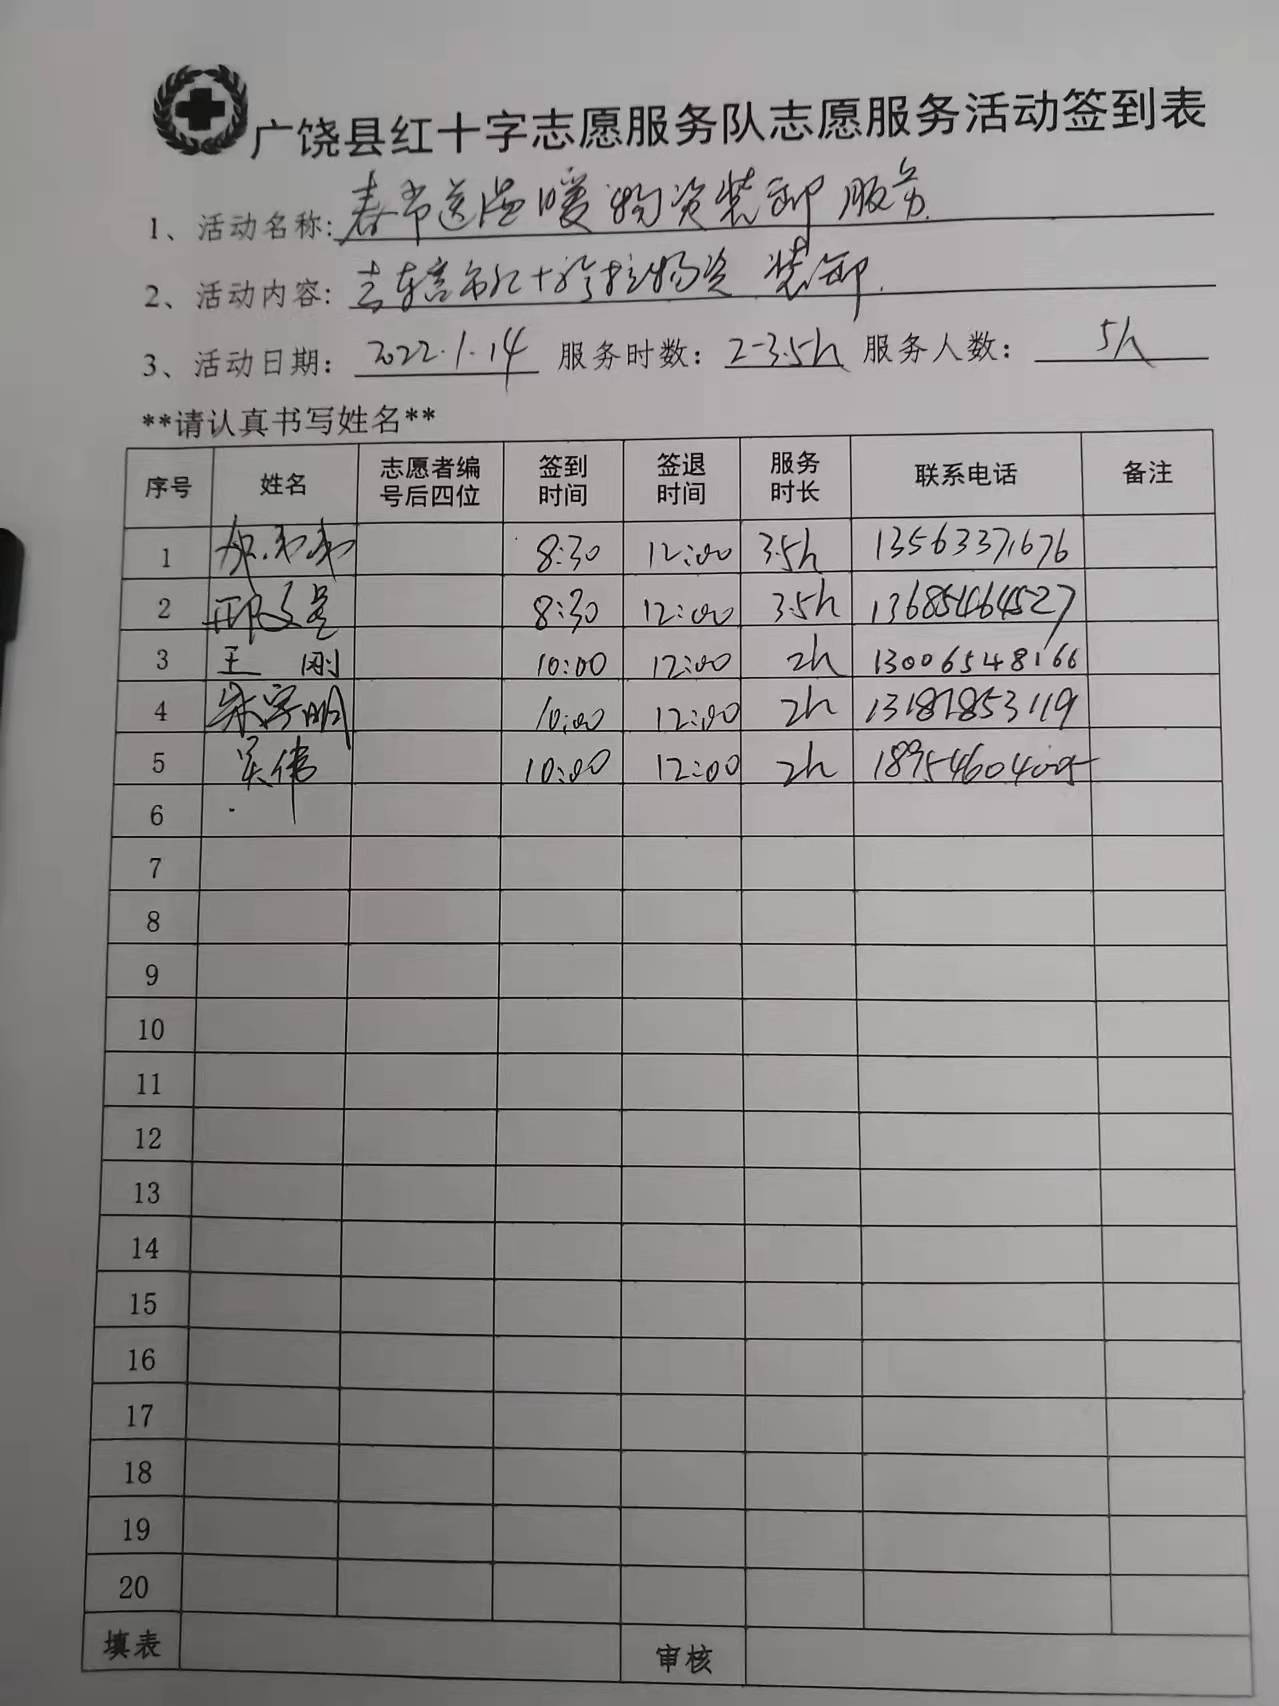 广饶县红十字志愿服务队志愿服务活动签到表
1、活动名称:春节送温暖物资装卸服务.
2、活动内容:去辖市红十字拉物资 装卸.
3、活动日期:2022.1.14 服务时数:2-3.5h 服务人数:5人
**请认真书写姓名**
序号 姓名 志愿者编号后四位 签到时间 签退时间 服务时长 联系电话 备注
1 8:30 12:00 3.5h 13563371676
2 8:30 12:00 3.5h 13685464527
3 王 刚 10:00 12:00 2h 13006548166
4 宋字明 10:00 12:00 2h 13181853119
5 吴伟 10:00 12:00 2h 18954604005
6
7
8
9
10
11
12
13
14
15
16
17
18
19
20
填表 审核